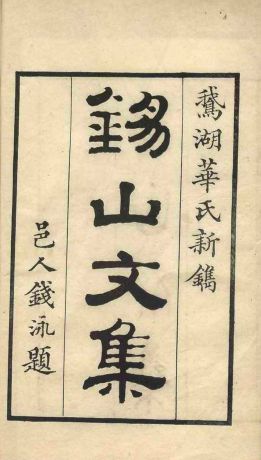 鵝湖華氏新鐫
錫山文集
邑人錢泳題